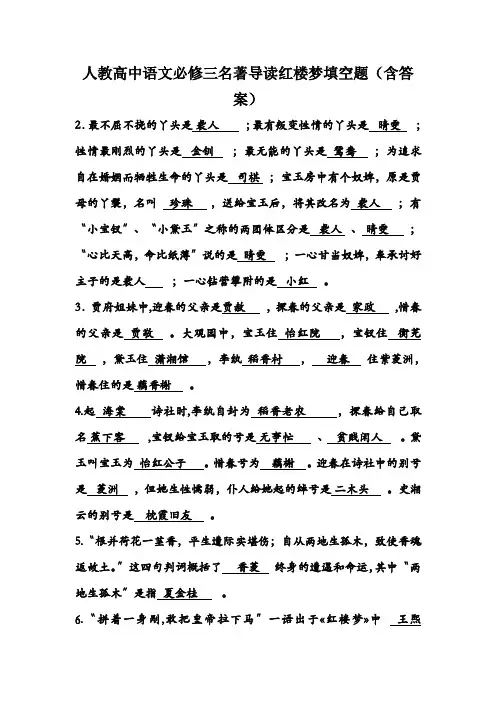 人教高中语文必修三名著导读红楼梦填空题（含答
案）
2.最不屈不挠的丫头是袭人 ;最有叛变性情的丫头是 晴雯 ;
性情最刚烈的丫头是 金钏 ; 最无能的丫头是 鸳鸯 ; 为追求
自在婚姻而牺牲生命的丫头是 司棋 ; 宝玉房中有个奴婢，原是贾
母的丫鬟，名叫 珍珠 ，送给宝玉后，将其改名为 袭人 ; 有
“小宝钗”、“小黛玉”之称的两团体区分是 袭人 、 晴雯 ;
“心比天高，命比纸薄”说的是晴雯 ;一心甘当奴婢，卑承讨好
主子的是袭人 ; 一心钻营攀附的是 小红 。
3. 贾府姐妹中,迎春的父亲是贾赦 ，探春的父亲是 家政 ,惜春
的父亲是 贾敬 。大观园中，宝玉住 怡红院 ，宝钗住 衡芜
院 ，黛玉住 潇湘馆 ，李纨 稻香村 ， 迎春 住紫菱洲，
惜春住的是藕香榭 。
4.起 海棠 诗社时,李纨自封为 稻香老农 ，探春给自己取
名蕉下客 ,宝钗给宝玉取的号是无事忙 、 贫贱闲人 。黛
玉叫宝玉为 怡红公子 。惜春号为 藕榭 。迎春在诗社中的别号
是 菱洲 ，但她生性懦弱，仆人给她起的绰号是二木头 。史湘
云的别号是 枕霞旧友 。
5.“根并荷花一茎香，平生遭际实堪伤；自从两地生孤木，致使香魂
返故土。”这四句判词概括了 香菱 终身的遭遇和命运,其中“两
地生孤木”是指 夏金桂 。
6.“拼着一身剐,敢把皇帝拉下马”一语出于«红楼梦»中 王熙